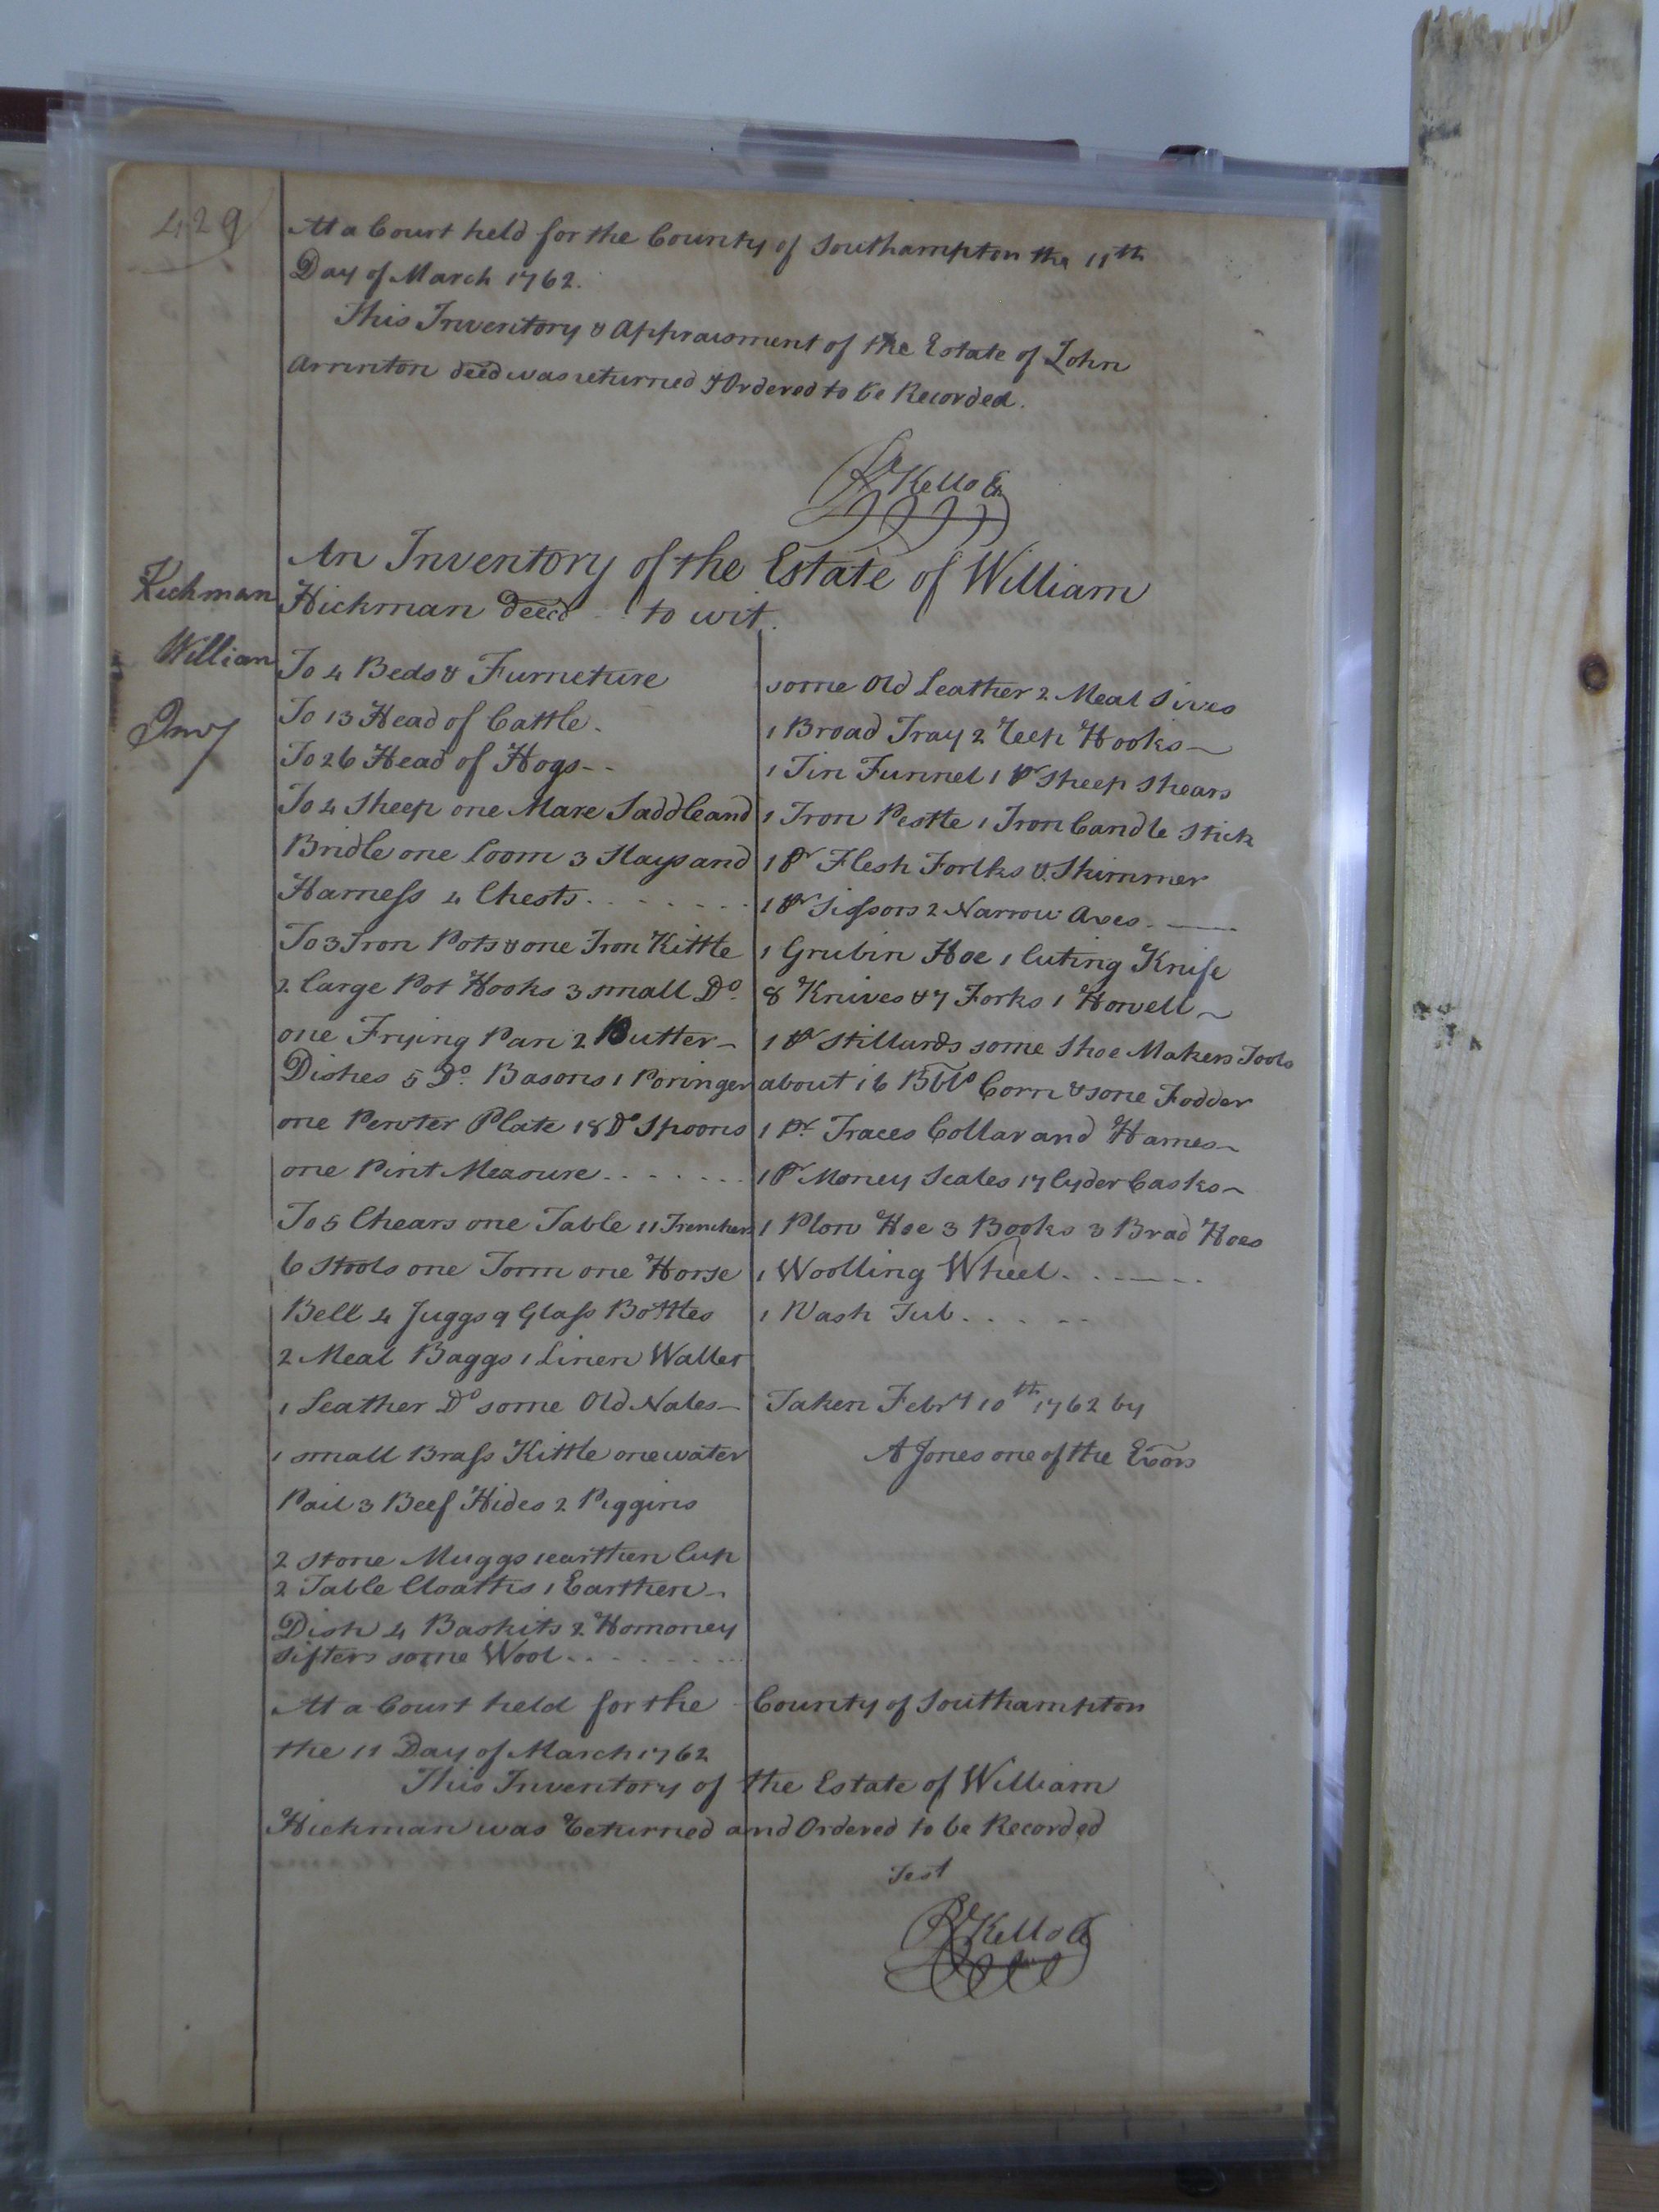 429
At a Court held for the County of Southampton the 11th
Day of March 1762.
This Inventory & Appraisment of the Estate of John
Arrinton decd was returned & Ordered to be Recorded.
Kello
An Inventory of the Estate of William
Hickman decd to wit.
Hickman
William
Invy
To 4 Beds & Furneture
To 13 Head of Cattle.
To 26 Head of Hogs--
To 4 Sheep one Mare Saddle and
Bridle one Loom 3 Slays and
Harness 4 Chests
To 3 Iron Pots & one Iron Kittle
2 large Pot Hooks 3 small Do.
one Frying Pan 2 Butter
Dishes 5 Do. Basons 1 Poringer
one Pewter Plate 18 Do Spoons
one Pint Measure
To 5 Chears one Table 11 Trenchers
6 Stools one Form one Horse
Bell 4 Juggs 9 Glass Bottles
2 Meal Baggs 1 Linen Wallet
1 Leather Do some Old Nales
1 small Brass Kittle one water
Pail 3 Beef Hides 2 Piggins
2 Stone Muggs 1 earthen Cup
2 Table Cloaths 1 Earthen
Dish 4 Baskits 2 Homoney
sifters some Wool
some Old Leather 2 Meal Sives
1 Broad Tray 2 Reep Hooks
1 Tin Funnel 1 pr Sheep Shears
1 Iron Pestle 1 Iron Candle Stick
1 pr Flesh Forlks & Skimmer
1 pr Sissors 2 Narrow Axes
1 Grubin Hoe 1 Cuting Knife
8 Knives & 7 Forks 1 Howell
1 pr Stillards some Shoe Makers Tools
about 16 Bbls Corn & some Fodder
1 Pr. Traces Collar and Hames
1 pr Money Scales 17 Cyder Casks
1 Plow Hoe 3 Books 3 Brad Hoes
1 Woolling Wheel
1 Wash Tub
Taken Febry 10th 1762 by
A Jones one of the Exors
At a Court held for the County of Southampton
the 11 Day of March 1762
This Inventory of the Estate of William
Hickman was Returned and Ordered to be Recorded
Test
Kello